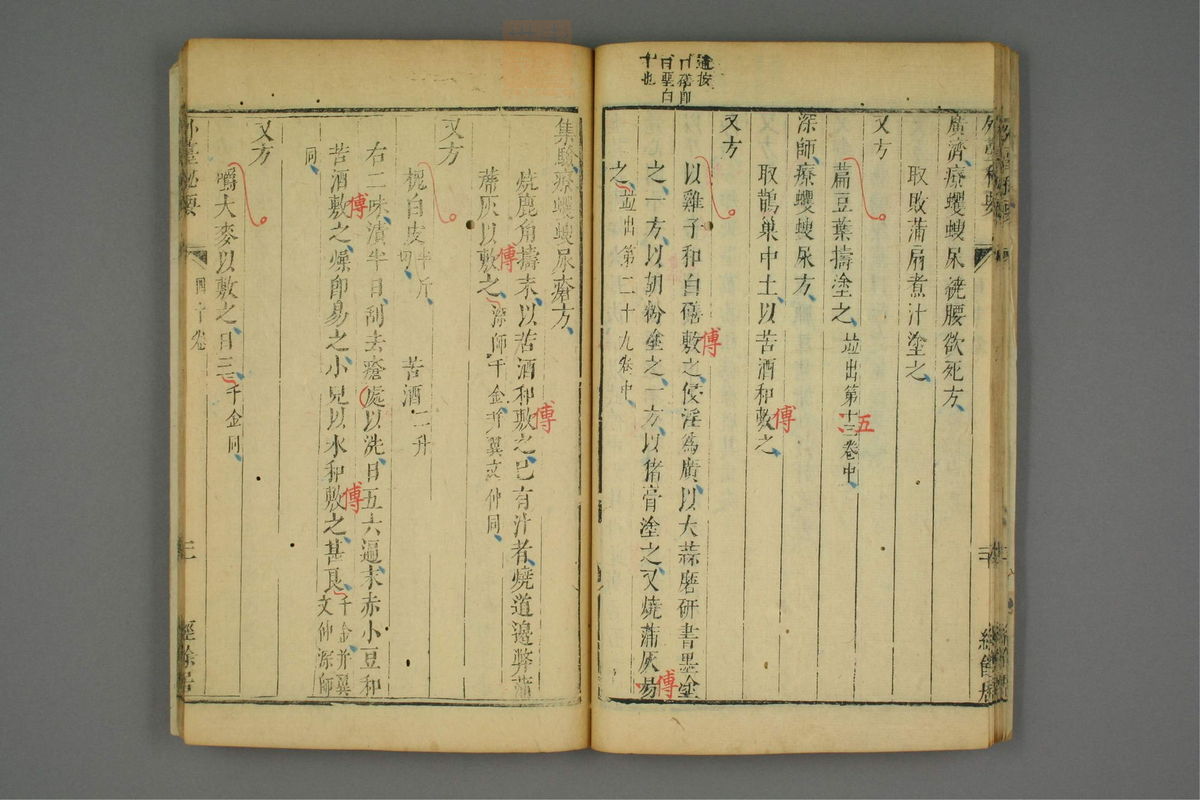 通按
白礜即
曰堊白
十也
廣濟療蠼螋尿繞腰欲死方
取敗蒲扇煮汁塗之
又方
萹豆葉擣塗之並出第十三卷中
五
深師療蠼螋尿方
取鵲巢中土以苦酒和敷之
傅
又方
以雞子和白礜敷之侵淫爲廣以大蒜磨研書墨塗
傅
之一方以胡粉塗之一方以猪膏塗之又燒蒲灰易
傅
之並出第二十九卷中
集驗療蠼螋尿瘡方
燒鹿角擣末以苦酒和敷之已有汁者燒道邊弊蒲
傅
蓆灰以敷之深師千金并翼文仲同
傅
又方
槐白皮半斤切 苦酒二升
右二味漬半日刮去瘡處以洗日五六遍末赤小豆和
苦酒敷之燥即易之小兒以水和敷之甚良千金并翼文仲深師
傅
傅
同
又方
嚼大麥以敷之日三千金同
外臺秘要
四十卷
三
經餘居